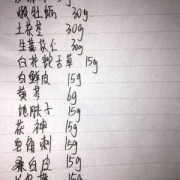 煅牡蛎 30g
土茯苓 30g
生薏苡仁 30g
白花蛇舌草 15g
白鲜皮 15g
黄芩 6g
地肤子 15g
茯神 15g
皂角刺 15g
桑白皮 15g